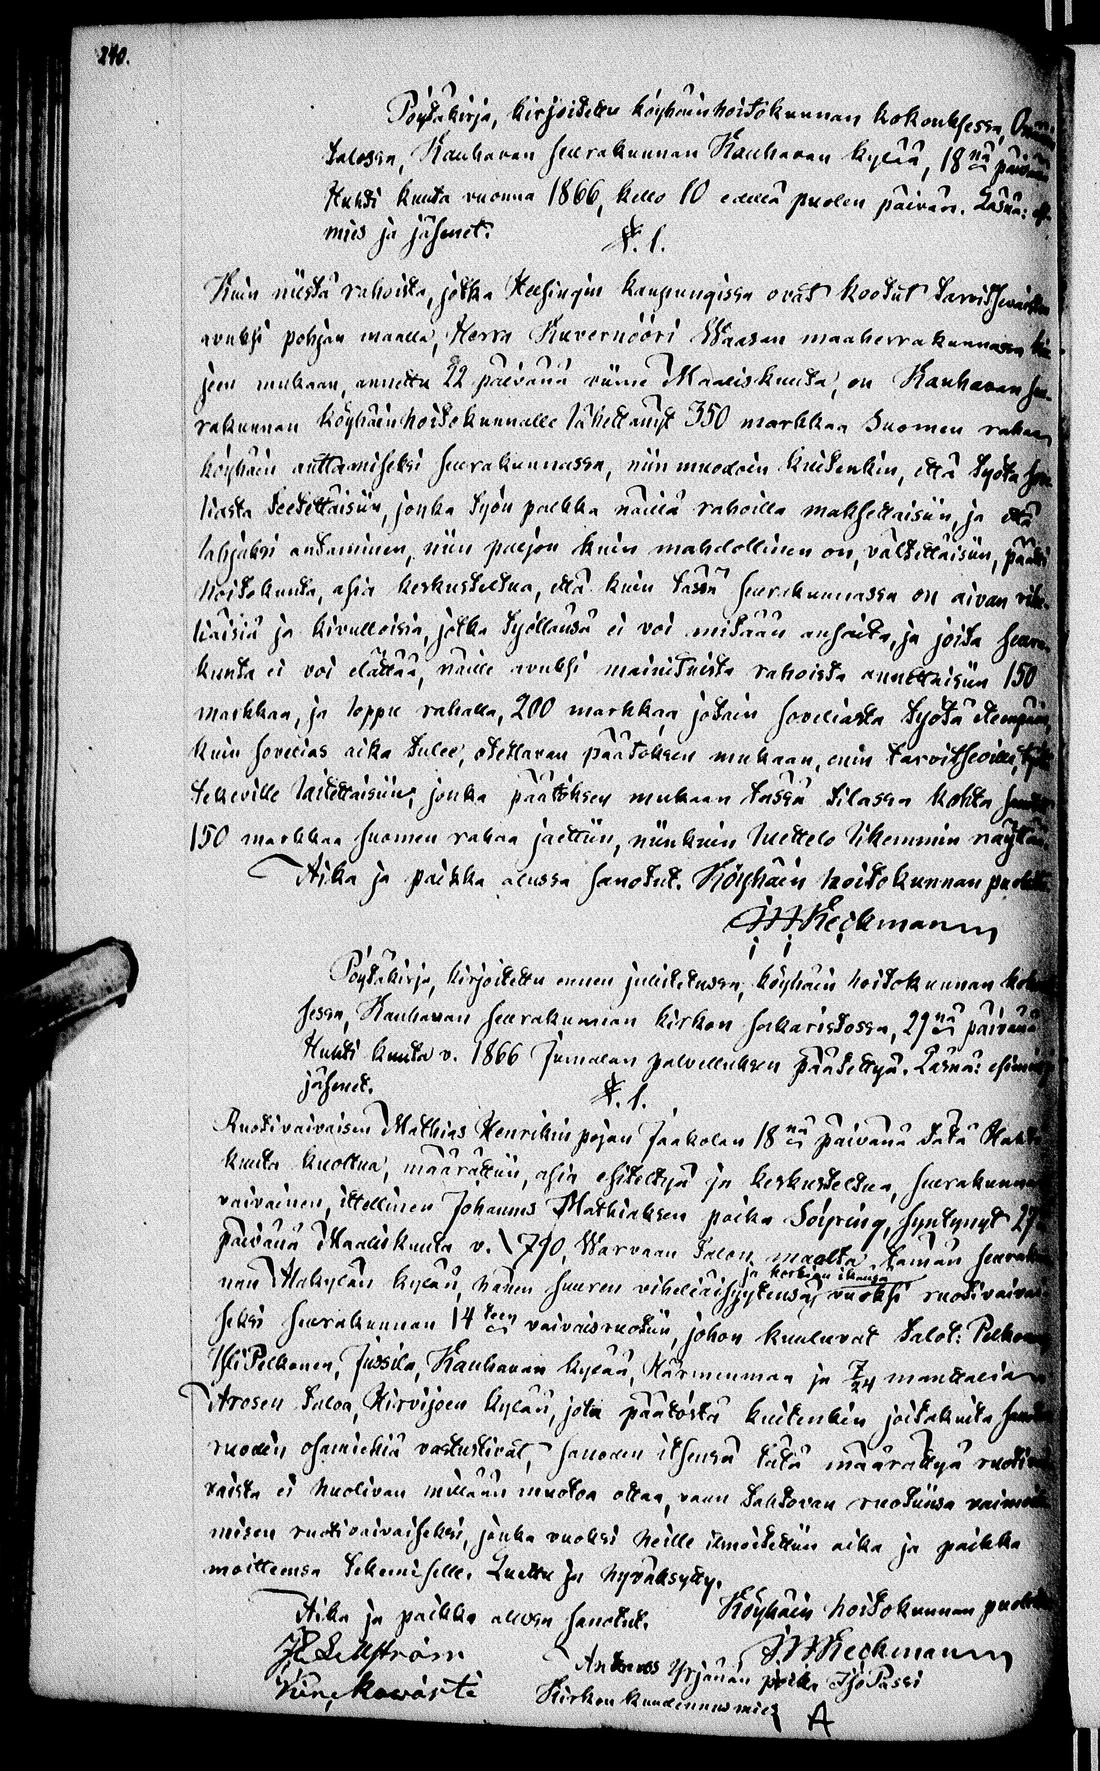 240.
Pöytäkirja, kirjoitettu köyhäinhoitokunnan kokouksessa,
talossa, Kauhavan seurakunnan Kauhavan kylää, 18nä päivänä
Huhti kuuta vuonna 1866, kello 10 edellä puolen päivän. Läsnä: esi-
mies ja jäsenet.
§. 1.
Kuin niistä rahoista, jotka Helsingin kaupungissa ovat kootut tarvitsevaisten
avuksi pohjan maalla, Herra Kuvernööri Waasan maaherrakunnassa kir-
jeen mukaan, annettu 22 päivänä viime Maaliskuuta, on Kauhavan seu-
rakunnan köyhäinhoitokunnalle lähettänyt 350 markkaa Suomen rahaa
köyhäin auttamiseksi seurakunnassa, niin muodoin kuitenkin, että työtä sove-
liasta teetettäisiin, jonka työn palkka näillä rahoilla maksettaisiin, ja että
lahjaksi antaminen, niin paljon kuin mahdollinen on, vältettäisiin, päätti
hoitokunta, asia keskusteltua, että kuin tässä seurakunnassa on aivan vihe-
liäisiä ja kivulloisia, jotka työllänsä ei voi mitään ansaita, ja joita seura-
kunta ei voi elättää, näille avuksi mainituista rahoista annettaisiin 150
markkaa, ja loppu rahalla, 200 markkaa jotain soveliasta työtä etempänä,
kuin sovelias aika tulee, otettavan päätöksen mukaan, enin tarvitseville, työn
tekeville laitettaisiin; jonka päätöksen mukaan tässä tilassa kohta sanotut
150 markkaa Suomen rahaa jaettiin, niinkuin luettelo likemmin näyttää.
Aika ja paikka alussa sanotut. Köyhäin hoitokunnan puolesta
J H Heckmann
Pöytäkirja, kirjoitettu ennen julistetussa, köyhäin hoitokunnan kokouk-
sessa, Kauhavan seurakunnan kirkon sakaristossa, 29nä päivänä
Huhti kuuta v. 1866 Jumalan palvelluksen päätettyä. Läsnä: esimies ja
jäsenet.
§. 1.
Ruotivaivaisen Mathias Henrikin pojan Jaakolan 18nä päivänä tätä Huhti
kuuta kuoltua, määrättiin, asia esiteltyä ja keskusteltua, seurakunnan
vaivainen, itsellinen Johannes Mathiaksen poika Söyring, syntynyt 27
päivänä Maaliskuuta v. 1790, Warvaan talon maalta, tämän seurakun-
nan Alakylän kylää, hänen suuren viheliäisyytensä ja korkian ikänsä vuoksi ruotivaivai-
seksi seurakunnan 14teen vaivaisruotiin, johon kuuluvat talot: Pelkonen,
YliPelkonen, Jussila, Kauhavan kylää, Härmenmaa ja 7/24 manttalia
Arosen taloa, Hirvijoen kylää, jota päätöstä kuitenkin joitakuita sanotun
ruodin osamiehiä vastustivat, sanoden itsensä tätä määrättyä ruotivai-
vaista ei huolivan millään muotoa ottaa, vaan tahtovan ruotiinsa
misen ruotivaivaiseksi, jonka vuoksi heille ilmoitettiin aika ja paikka
moitteensa tekemiselle. Luettu ja hyväksytty.
Aika ja paikka alussa sanotut. Köyhäin hoitokunnan puolesta
J H Heckmann
Sellström
Andreas Yrjänän poika IsoPassi
Kirkon kuudennusmies A